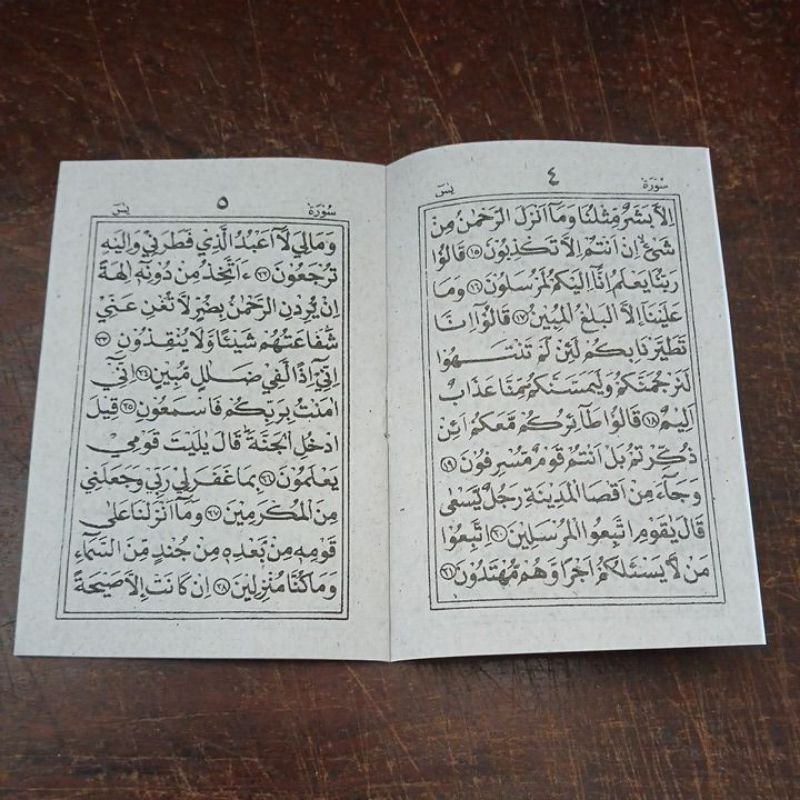 سُوْرَةُ ٤ يٰسٓ
اِلَّا بَشَرٌ مِّثْلُنَا وَمَآ اَنْزَلَ الرَّحْمٰنُ مِنْ
شَيْءٍ اِنْ اَنْتُمْ اِلَّا تَكْذِبُوْنَ ١٥ قَالُوْا
رَبُّنَا يَعْلَمُ اِنَّآ اِلَيْكُمْ لَمُرْسَلُوْنَ ١٦ وَمَا
عَلَيْنَآ اِلَّا الْبَلٰغُ الْمُبِيْنُ ١٧ قَالُوْٓا اِنَّا
تَطَيَّرْنَا بِكُمْ لَئِنْ لَّمْ تَنْتَهُوْا
لَنَرْجُمَنَّكُمْ وَلَيَمَسَّنَّكُمْ مِّنَّا عَذَابٌ
اَلِيْمٌ ١٨ قَالُوْا طَآئِرُكُمْ مَّعَكُمْ اَئِنْ
ذُكِّرْتُمْ بَلْ اَنْتُمْ قَوْمٌ مُّسْرِفُوْنَ ١٩
وَجَآءَ مِنْ اَقْصَا الْمَدِيْنَةِ رَجُلٌ يَّسْعٰى
قَالَ يٰقَوْمِ اتَّبِعُوا الْمُرْسَلِيْنَ ٢٠ اِتَّبِعُوْا
مَنْ لَّا يَسْـَٔلُكُمْ اَجْرًا وَّهُمْ مُّهْتَدُوْنَ ٢١
سُوْرَةُ ٥ يٰسٓ
وَمَالِيَ لَآ اَعْبُدُ الَّذِيْ فَطَرَنِيْ وَاِلَيْهِ
تُرْجَعُوْنَ ٢٢ ءَاَتَّخِذُ مِنْ دُوْنِهٖٓ اٰلِهَةً
اِنْ يُّرِدْنِ الرَّحْمٰنُ بِضُرٍّ لَّا تُغْنِ عَنِّيْ
شَفَاعَتُهُمْ شَيْئًا وَّلَا يُنْقِذُوْنِ ٢٣
اِنِّيْٓ اِذًا لَّفِيْ ضَلٰلٍ مُّبِيْنٍ ٢٤ اِنِّيْٓ
اٰمَنْتُ بِرَبِّكُمْ فَاسْمَعُوْنِ ٢٥ قِيْلَ
ادْخُلِ الْجَنَّةَ قَالَ يٰلَيْتَ قَوْمِيْ
يَعْلَمُوْنَ ٢٦ بِمَا غَفَرَلِيْ رَبِّيْ وَجَعَلَنِيْ
مِنَ الْمُكْرَمِيْنَ ٢٧ وَمَآ اَنْزَلْنَا عَلٰى
قَوْمِهٖ مِنْۢ بَعْدِهٖ مِنْ جُنْدٍ مِّنَ السَّمَآءِ
وَمَا كُنَّا مُنْزِلِيْنَ ٢٨ اِنْ كَانَتْ اِلَّا صَيْحَةً